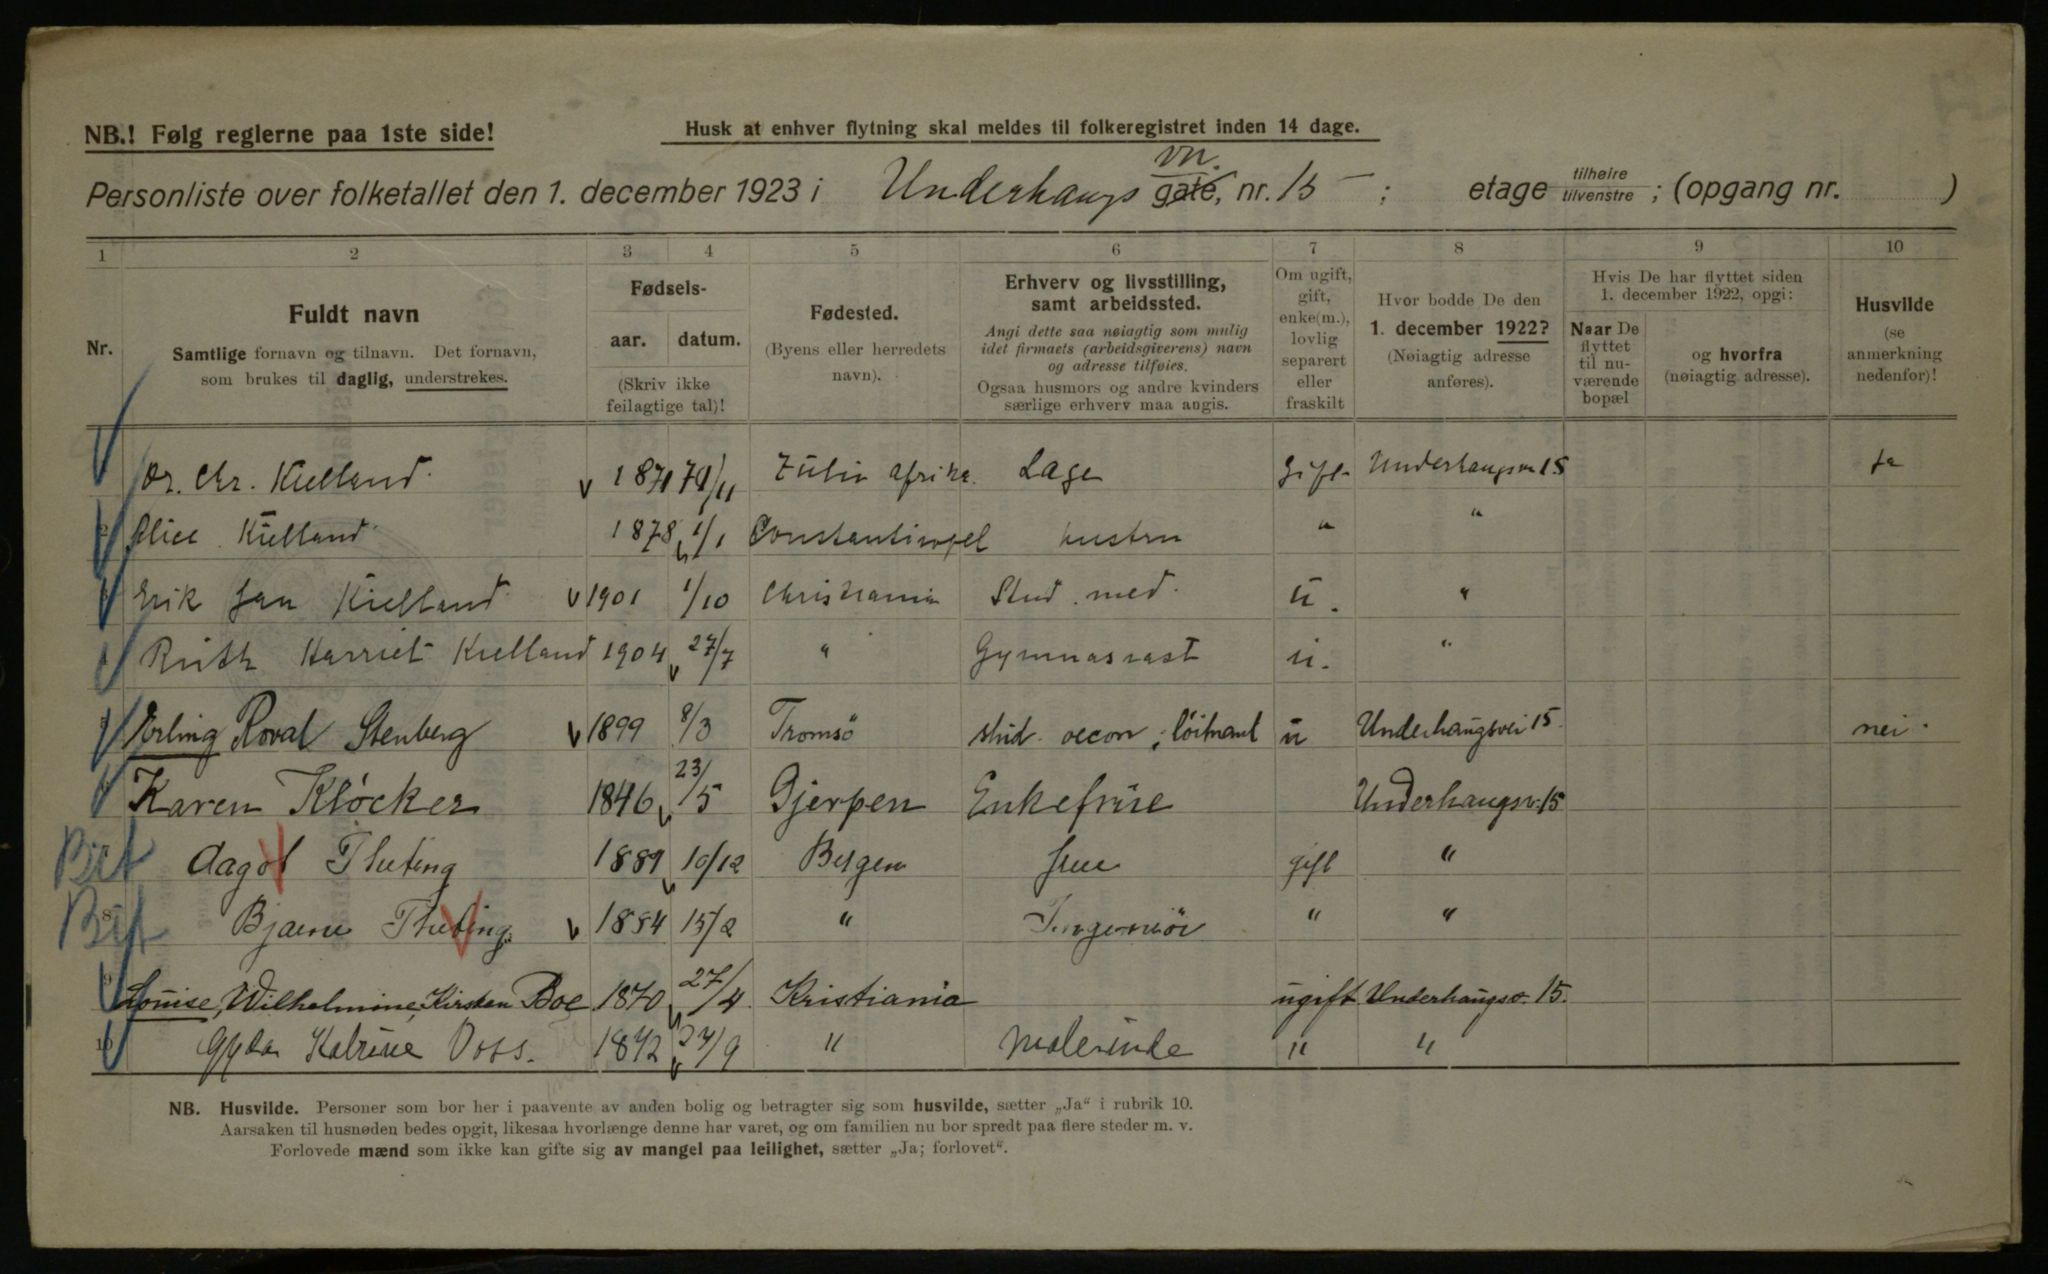 NB.! Følg reglerne paa 1ste side!
Husk at enhver flytning skal meldes til folkeregistret inden 14 dage.
Personliste over folketallet den 1. december 1923 i Underhaugs vn. gate, nr. 15 ; etage tilhøire tilvenstre ; (opgang nr. )
1 2 3 4 5 6 7 8 9 10
Nr.
Fuldt navn
Samtlige fornavn og tilnavn. Det fornavn,
som brukes til daglig, understrekes.
Fødsels-
aar. datum.
(Skriv ikke
feilagtige tal)!
Fødested.
(Byens eller herredets
navn).
Erhverv og livsstilling,
samt arbeidssted.
Angi dette saa nøiagtig som mulig
idet firmaets (arbeidsgiverens) navn
og adresse tilføies.
Ogsaa husmors og andre kvinders
særlige erhverv maa angis.
Om ugift,
gift,
enke(m.),
lovlig
separert
eller
fraskilt
Hvor bodde De den
1. december 1922?
(Nøiagtig adresse
anføres).
Hvis De har flyttet siden
1. december 1922, opgi:
Naar De
flyttet
til nu-
værende
bopæl
og hvorfra
(nøiagtig adresse).
Husvilde
(se
anmerkning
nedenfor)!
Dr. Chr. Kielland 1871 Zulu afrika. Læge Gift Underhaugsvn 15 Ja
Alice Kielland 1878 1/1 Constantinopel hustru " "
Erik Jan Kielland 1901 1/10 Christiania Stud. med. u. "
Ruth Harriet Kielland 1904 27/7 " Gymnasiast u. "
Erling Roval Stenberg 1899 8/3 Tromsö stud. oecon, löitnant u Underhaugsvei 15. nei.
Karen Klöcker 1846 23/5 Gjerpen Enkefrue Underhaugsv. 15
Birt Dagot Thebing 1889 10/12 Bergen frue gift "
8 Birt Bjarne Thebing 1884 15/2 " Ingeniör " "
9 Louise, Wilhelmine, Kirsten Boe 1870 27/4 Kristiania ugift Underhaugsv. 15.
10 Gyda Katrine Voss. 1842 24/9 " Malerinde " "
NB. Husvilde. Personer som bor her i paavente av anden bolig og betragter sig som husvilde, sætter „Ja“ i rubrik 10.
Aarsaken til husnøden bedes opgit, likesaa hvorlænge denne har varet, og om familien nu bor spredt paa flere steder m. v.
Forlovede mænd som ikke kan gifte sig av mangel paa leilighet, sætter „Ja; forlovet“.